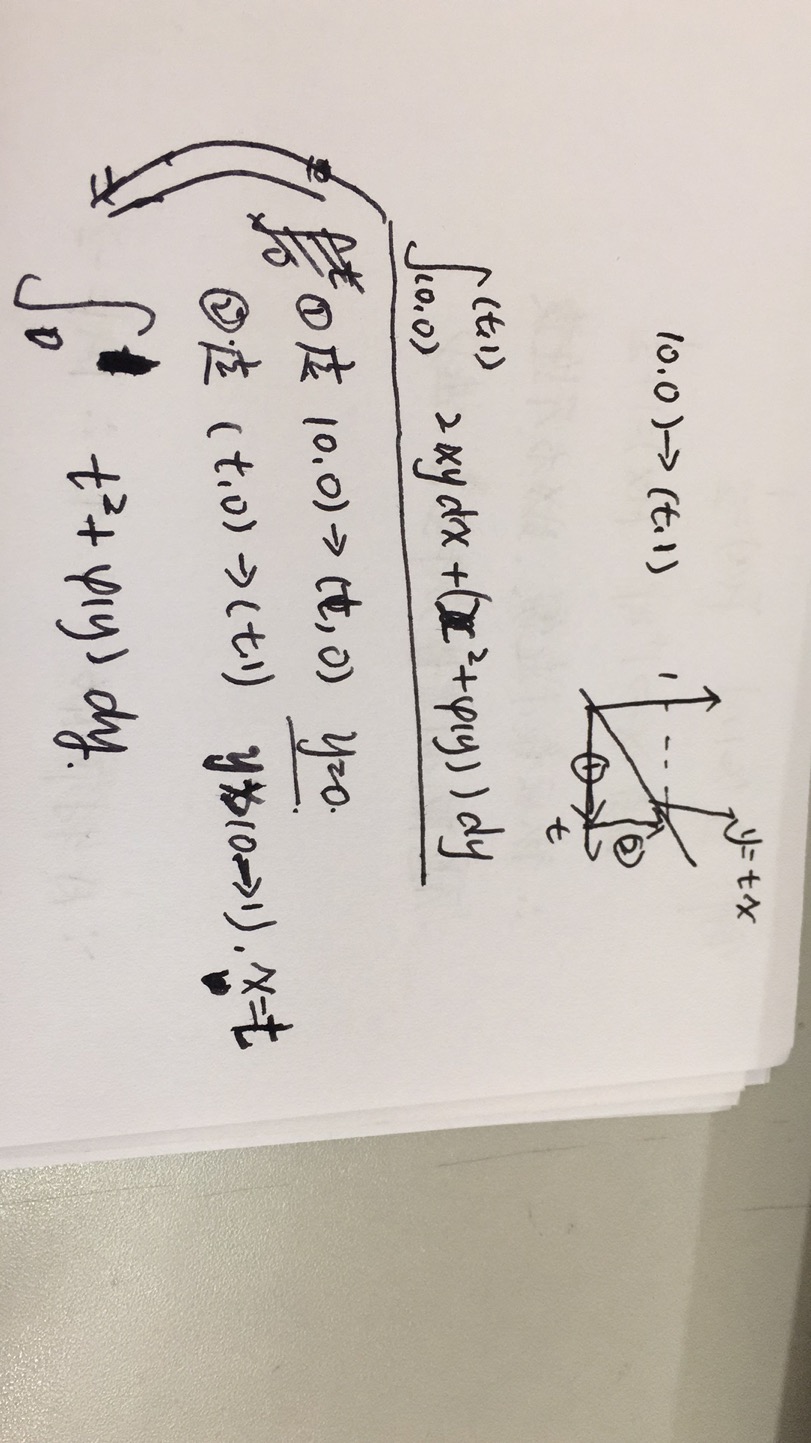 (0,0)→(t,1)
y=tx
1
①
②
t
∫(0,0)^(t,1) 2xydx+(x²+φ(y))dy
① 在 (0,0)→(t,0) y=0.
② 在 (t,0)→(t,1) y(0→1), x=t
∫0^1 t²+φ(y) dy.